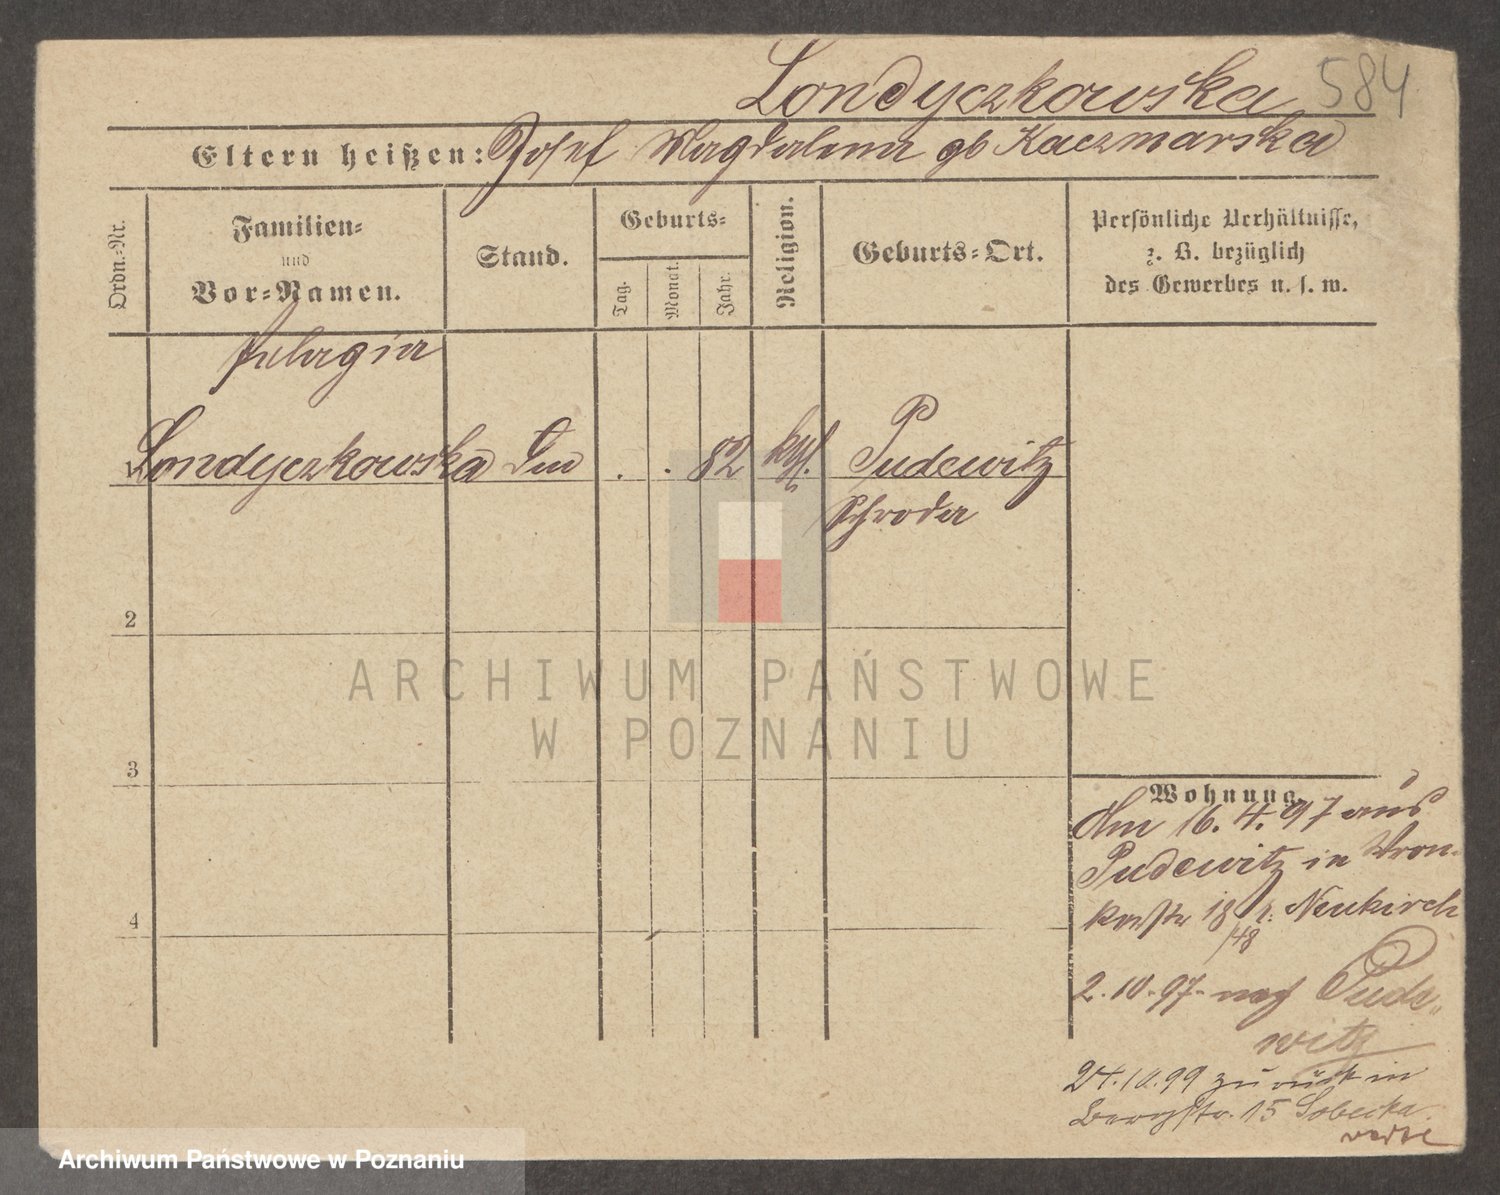 Londyczkowska 584
Eltern heißen: Josef Magdalena gb Kaczmarska
Ordn.-Nr.
Familien-
und
Vor-Namen.
Stand.
Geburts-
Tag.
Monat.
Jahr.
Religion.
Geburts-Ort.
Persönliche Verhältnisse,
z. B. bezüglich
des Gewerbes u. s. w.
Pelagia
1 Londyczkowska . . 82 kath. Pudewitz
Schroda
2
3
4
Wohnung
Am 16.4.97 aus
Pudewitz in Wron-
kerstr 18 b. Neukirch
/48
2.10.97 nach Pude-
witz
24.10.99 zurück in
Bergstr. 15 Sobecka.
ARCHIWUM PAŃSTWOWE
W POZNANIU
Archiwum Państwowe w Poznaniu